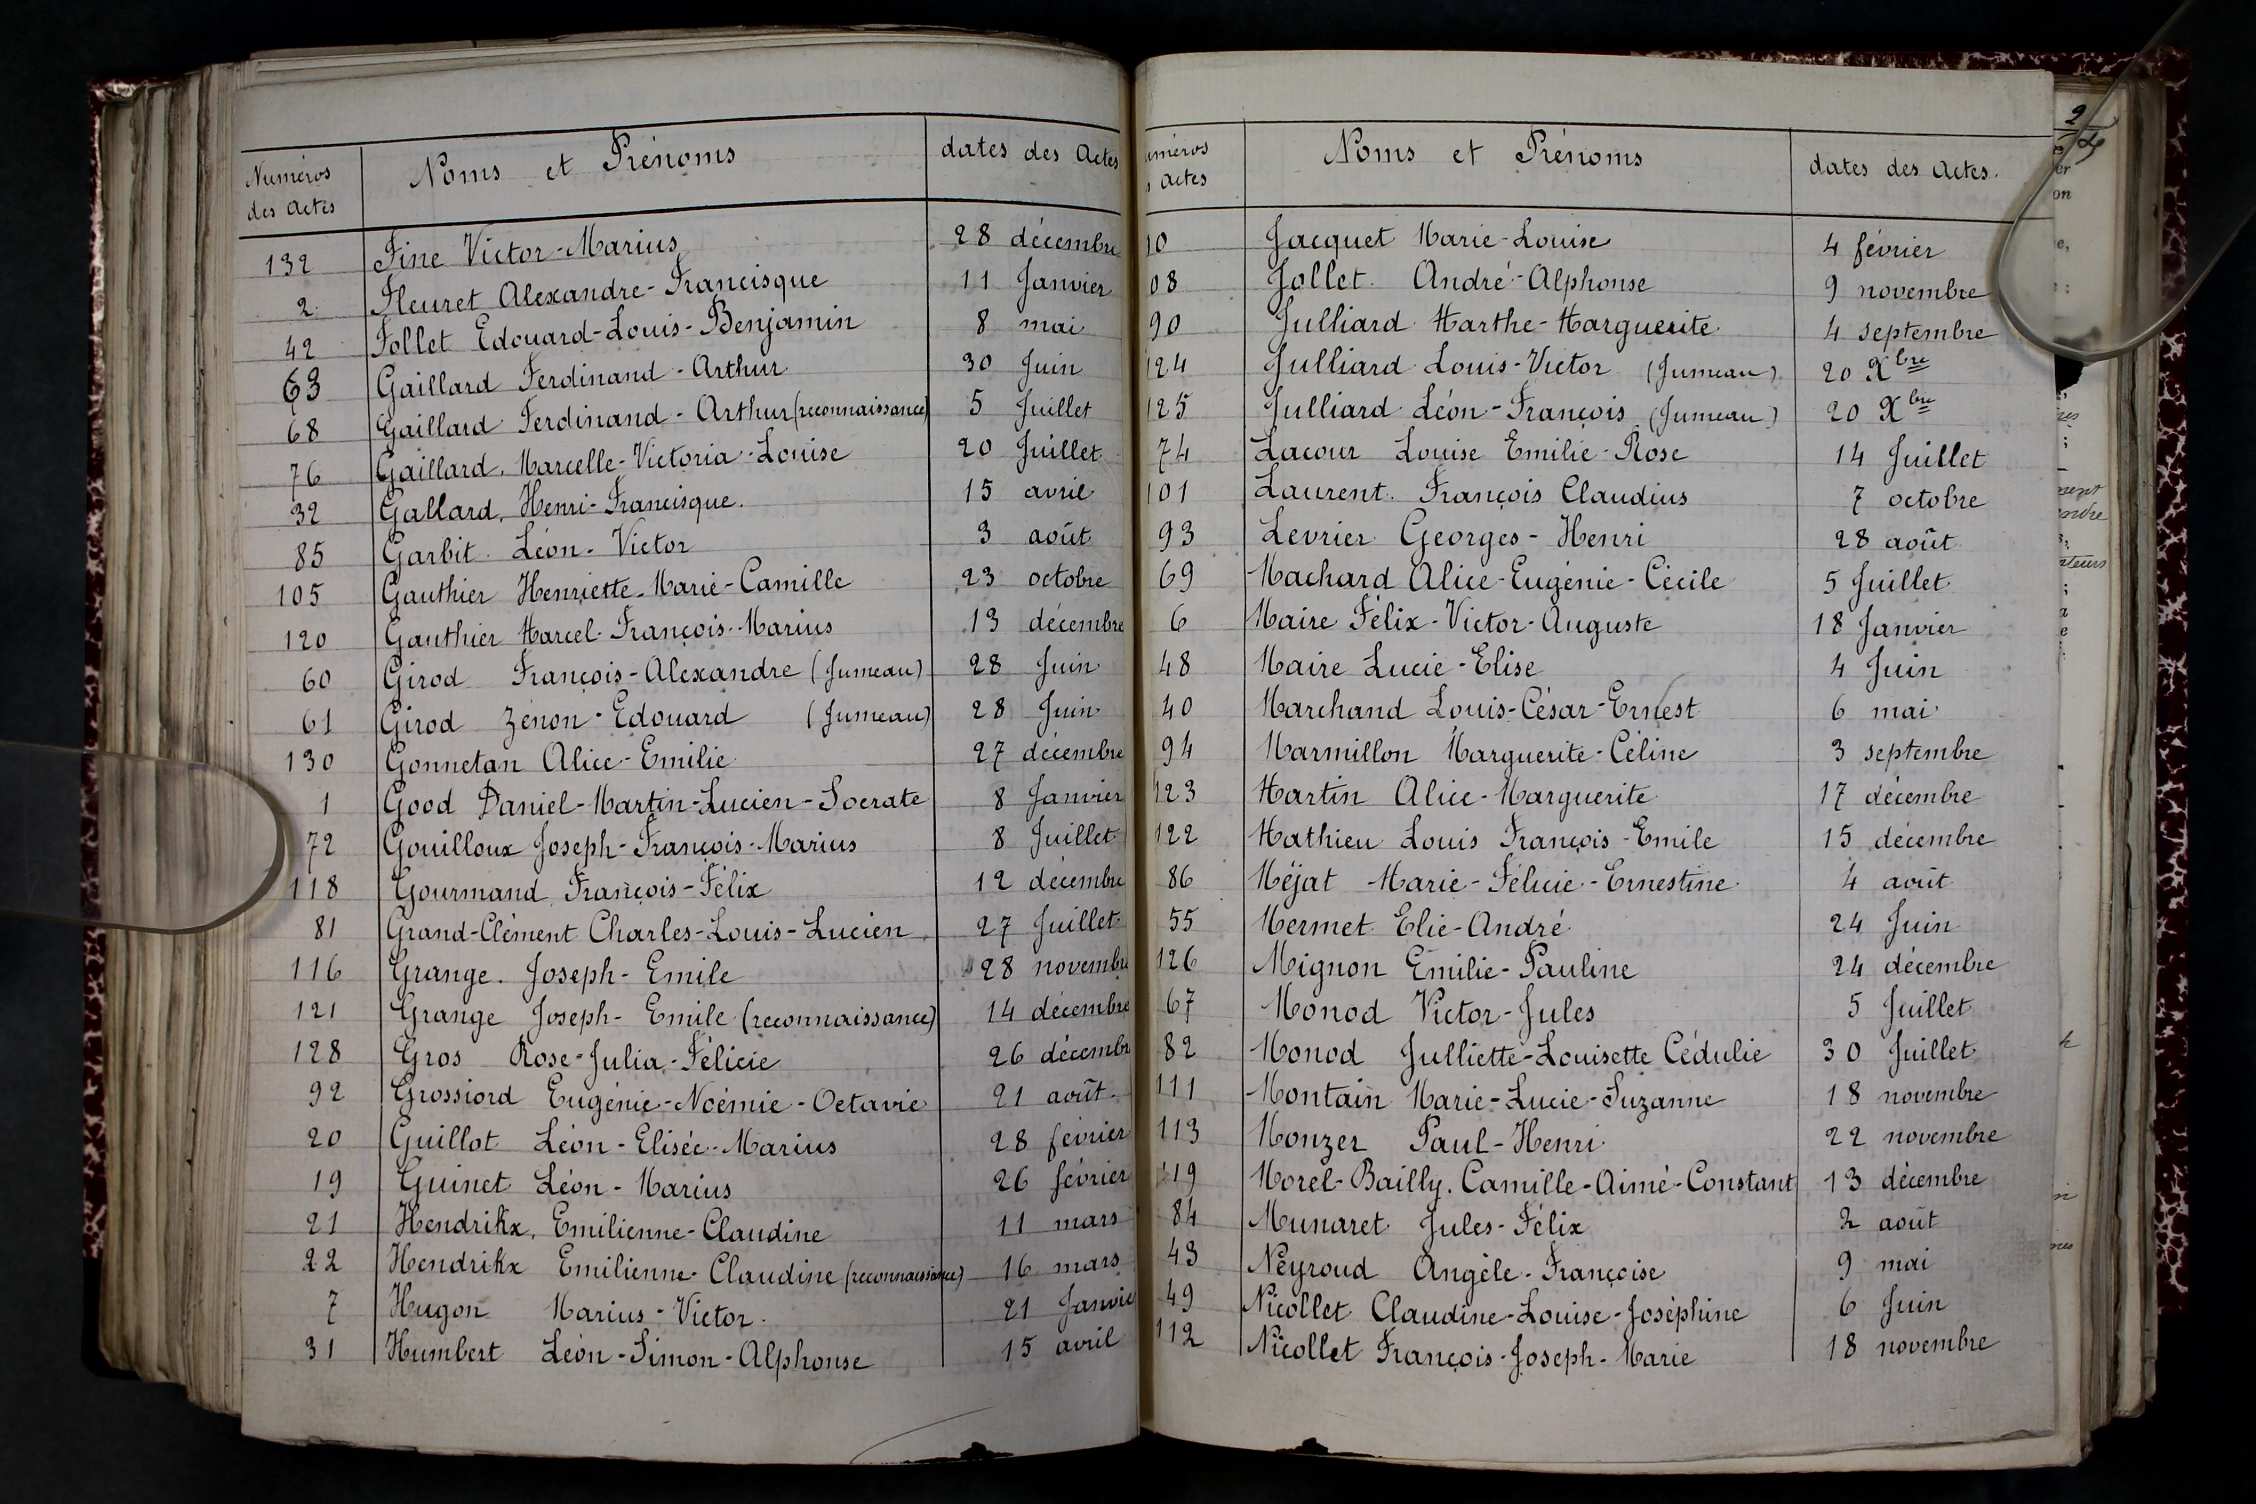 Numéros des Actes Noms et Prénoms dates des Actes
132 Fine Victor-Marius 28 décembre
2 Fleuret Alexandre-Francisque 11 Janvier
42 Follet Edouard-Louis-Benjamin 8 mai
63 Gaillard Ferdinand-Arthur 30 Juin
68 Gaillard Ferdinand-Arthur (reconnaissance) 5 Juillet
76 Gaillard, Marcelle-Victoria-Louise 20 Juillet
32 Gallard, Henri-Francisque. 15 avril
85 Garbit Léon-Victor 3 août
105 Gauthier Henriette-Marie-Camille 23 octobre
120 Gauthier Marcel-François-Marius 13 décembre
60 Girod François-Alexandre (Jumeau) 28 Juin
61 Girod Zénon-Edouard (Jumeau) 28 Juin
130 Gonnetan Alice-Emilie 27 décembre
1 Good Daniel-Martin-Lucien-Socrate 8 Janvier
72 Gouilloux Joseph-François-Marius 8 Juillet
118 Gourmand François-Félix 12 décembre
81 Grand-Clément Charles-Louis-Lucien 27 Juillet
116 Grange. Joseph-Emile 28 novembre
121 Grange Joseph-Emile (reconnaissance) 14 décembre
128 Gros Rose-Julia-Félicie 26 décembr
92 Grossiord Eugénie-Noémie-Octavie 21 août.
20 Guillot Léon-Elisée-Marius 28 février
19 Guinet Léon-Marius 26 février
21 Hendrikx, Emilienne-Claudine 11 mars
22 Hendrikx Emilienne-Claudine (reconnaissance) 16 mars
7 Hugon Marius-Victor. 21 Janvie
31 Humbert Léon-Simon-Alphonse 15 avril
uméros s Actes Noms et Prénoms dates des Actes.
10 Jacquet Marie-Louise 4 février
08 Jollet André-Alphonse 9 novembre
90 Julliard Marthe-Marguerite 4 septembre
124 Julliard Louis-Victor (Jumeau) 20 Xbre
125 Julliard Léon-François (Jumeau) 20 Xbre
74 Lacour Louise Emilie-Rose 14 Juillet
101 Laurent. François Claudius 7 octobre
93 Levrier Georges-Henri 28 août
69 Machard Alice-Eugénie-Cécile 5 Juillet
6 Maire Félix-Victor-Auguste 18 Janvier
48 Maire Lucie-Elise 4 Juin
40 Marchand Louis-César-Ernest 6 mai
94 Marmillon Marguerite-Céline 3 septembre
123 Martin Alice-Marguerite 17 décembre
122 Mathieu Louis François-Emile 15 décembre
86 Méjat Marie-Félicie-Ernestine 4 août
55 Mermet Elie-André 24 Juin
126 Mignon Emilie-Pauline 24 décembre
67 Monod Victor-Jules 5 Juillet
82 Monod Julliette-Louisette Cédulie 30 Juillet
111 Montain Marie-Lucie-Suzanne 18 novembre
113 Monzer Paul-Henri 22 novembre
119 Morel-Bailly. Camille-Aimé-Constant 13 décembre
84 Munaret Jules-Félix 2 août
43 Neyroud Angèle-Françoise 9 mai
49 Nicollet Claudine-Louise-Joséphine 6 Juin
112 Nicollet François-Joseph-Marie 18 novembre